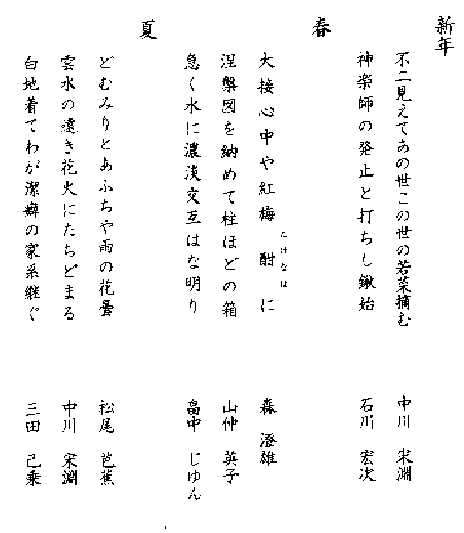 新年
不二見えてあの世この世の若菜摘む 中川 宋淵
神楽師の発止と打ちし鍬始 石川 宏次
春
大接心中や紅梅酣に たけなは 森 澄雄
涅槃図を納めて柱ほどの箱 山仲 英子
急く水に濃淡交互はな明り 畠中 じゆん
夏
どむみりとあふちや雨の花曇 松尾 芭蕉
雲水の遠き花火にたちどまる 中川 宋淵
白地着てわが潔癖の家系継ぐ 三田 己乗